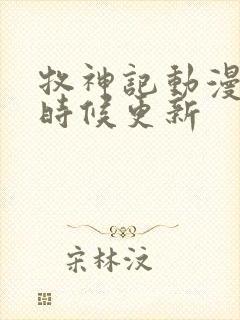 牧神記動漫
時候更新
宋林汶